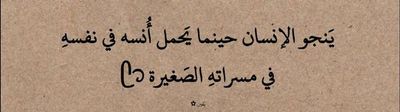 يَنجو الإنسان حينما يَحمل أُنسه في نفسهِ
في مسراتهِ الصَغيرة